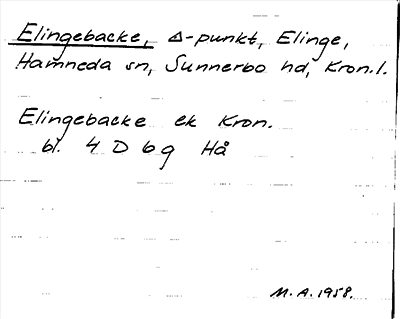 Elingebacke, Δ-punkt, Elinge,
Hamneda sn, Sunnerbo hd, Kron.l.
Elingebacke ek Kron.
bl. 4 D b g Hå
M.A. 1958.